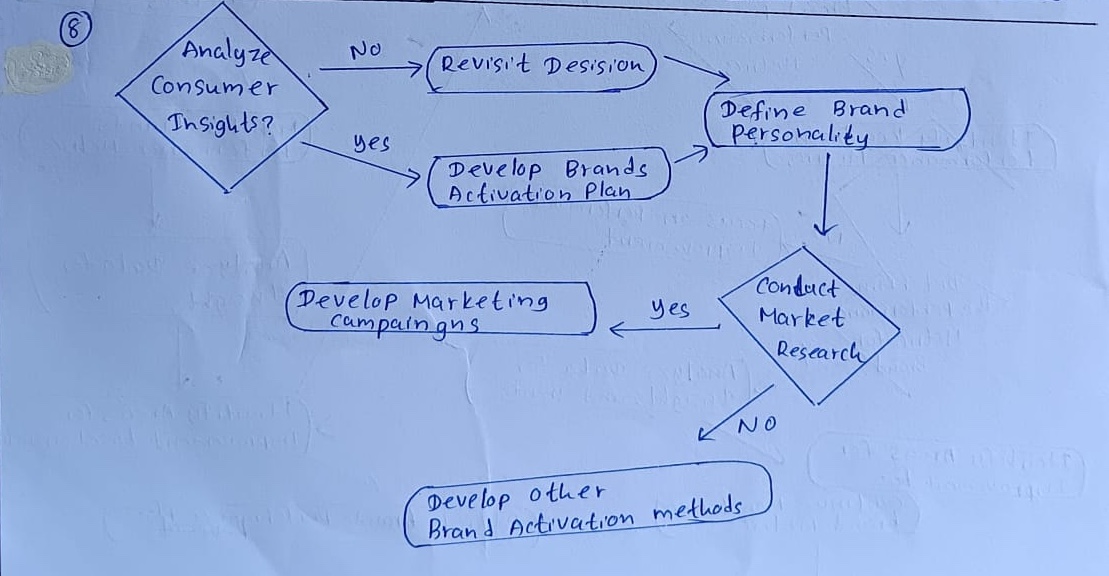 8
Analyze
Consumer
Insights?
NO
Revisit Desision
yes
Develop Brands
Activation Plan
Define Brand
Personality
Conduct
Market
Research
yes
Develop Marketing
Campaingns
NO
Develop other
Brand Activation methods